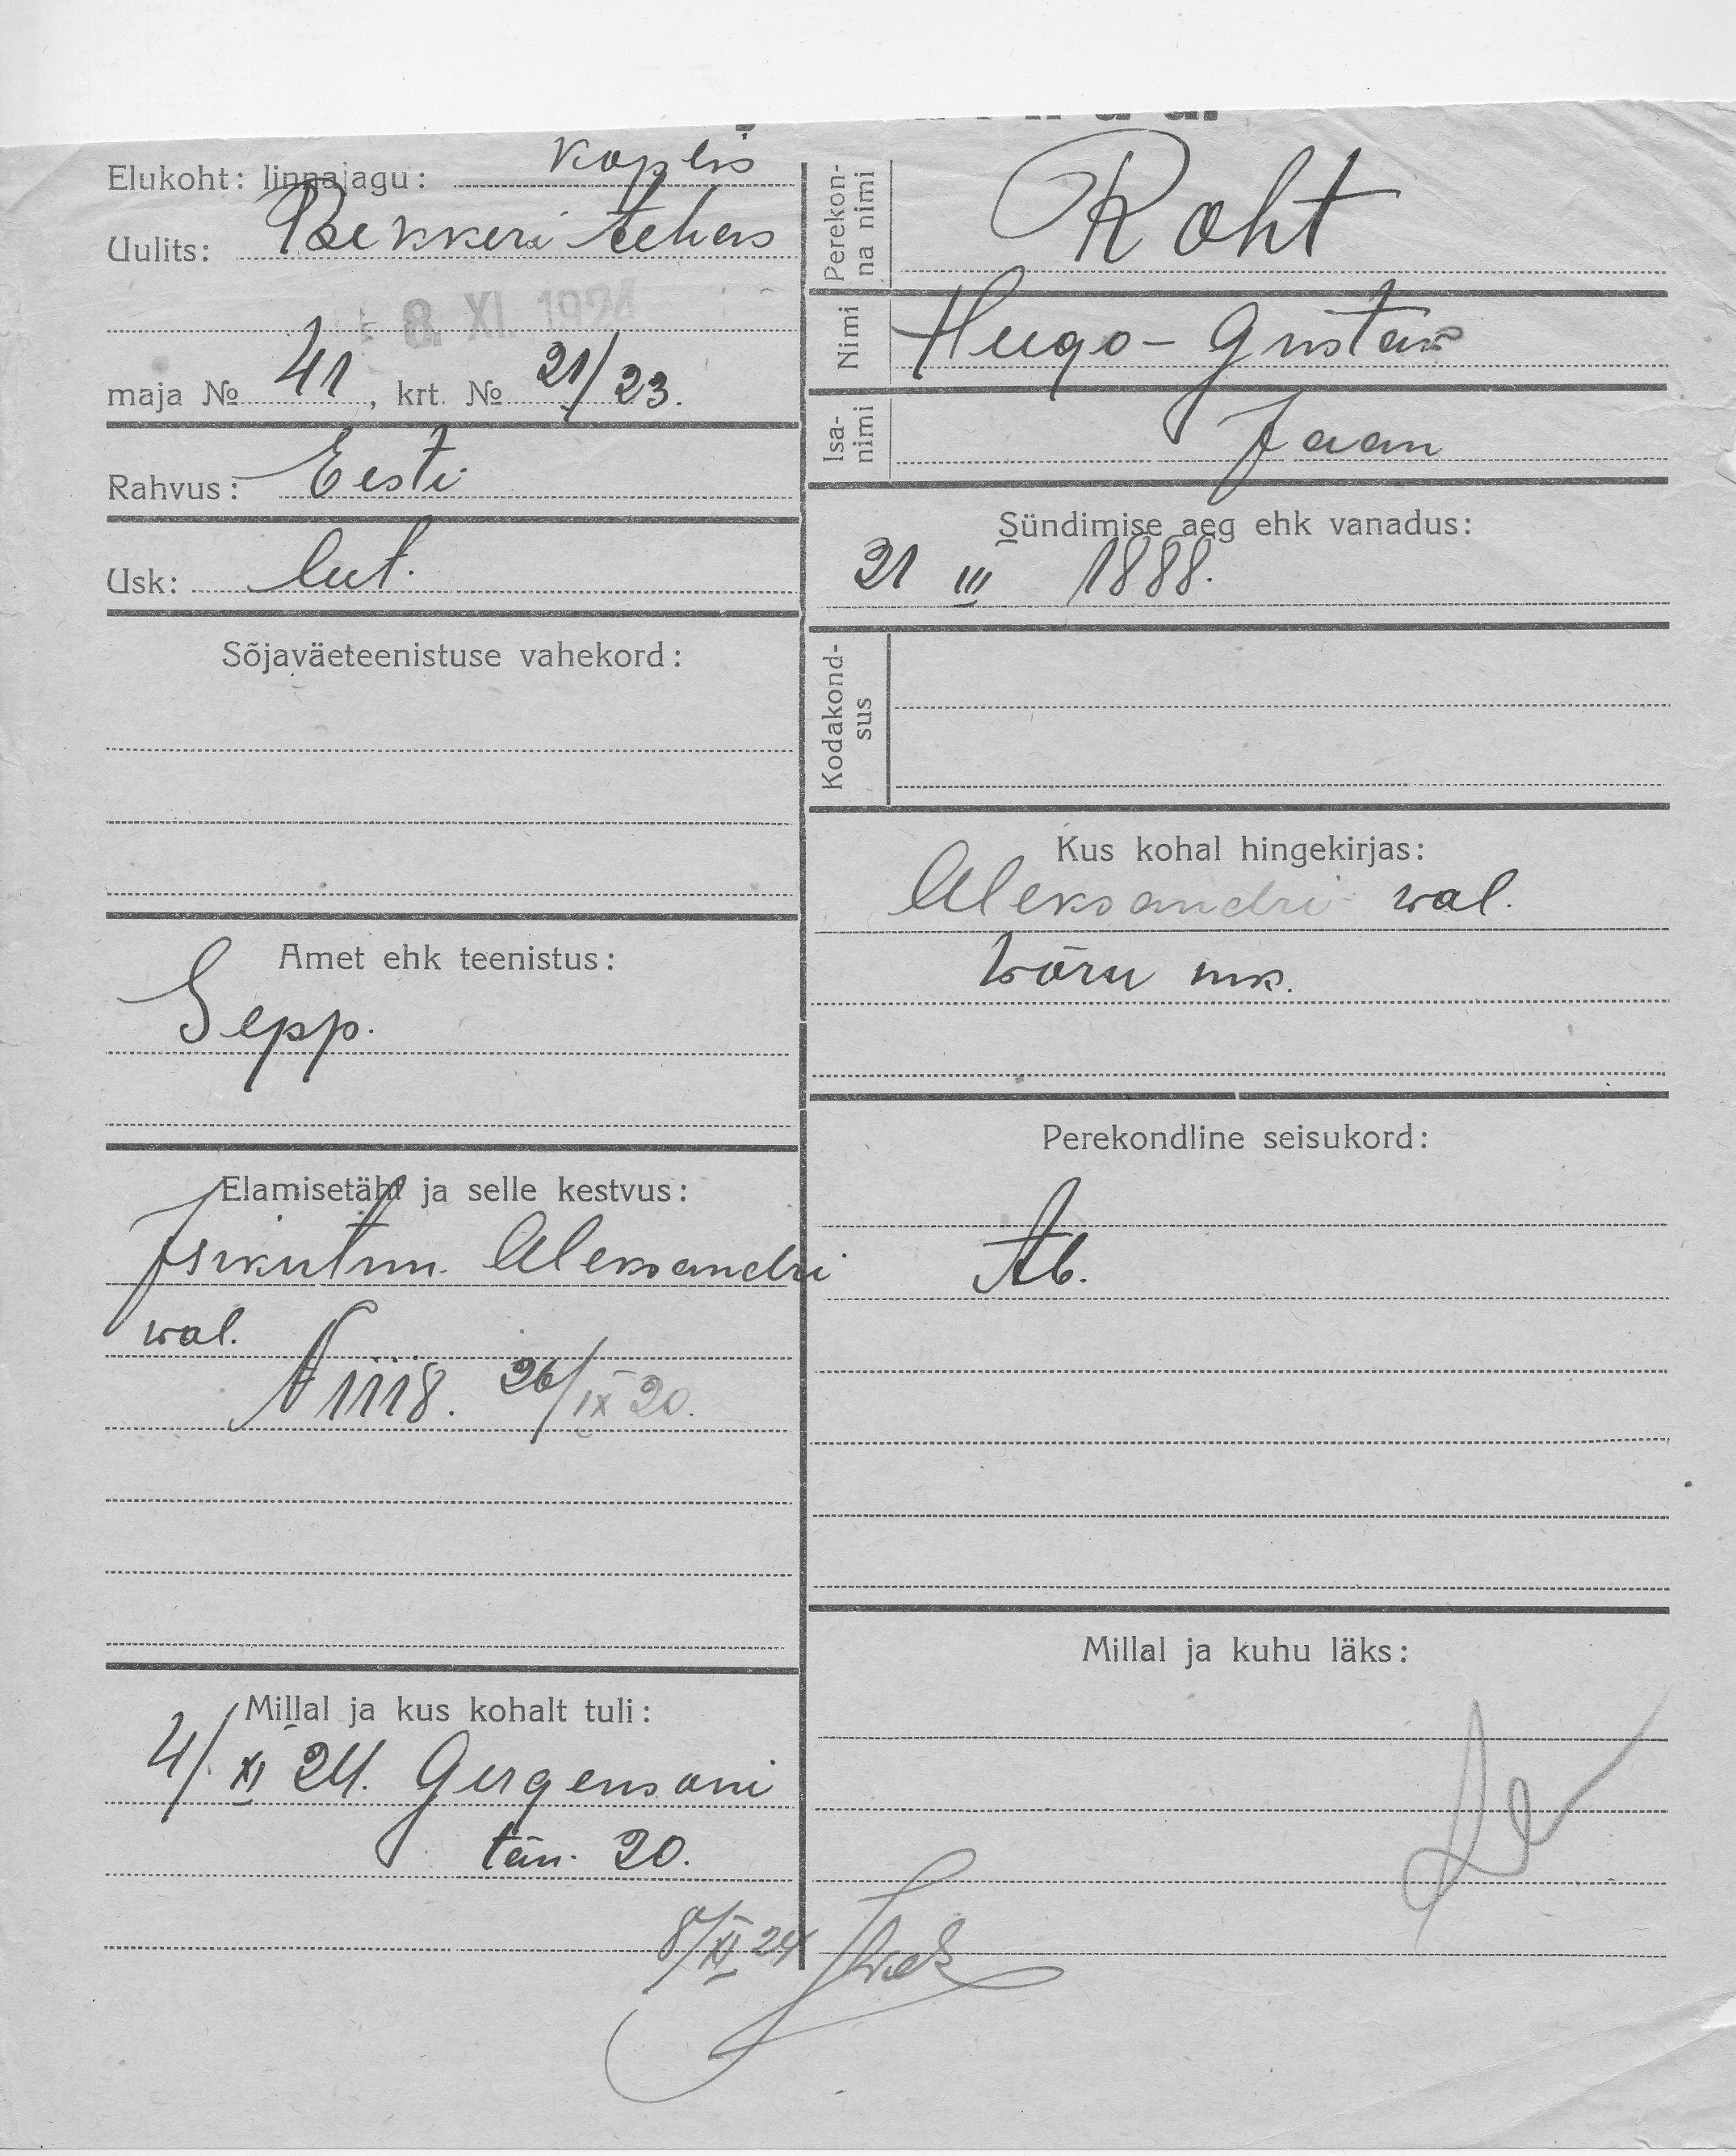 Elukoht: linnajagu: Koplis
Uulits: Bekkeri tehas
8. XI. 1924
maja № 41, krt. № 21/23.
Rahvus: Eesti
Usk: lut.
Sõjaväeteenistuse vahekord:
Amet ehk teenistus:
Sepp.
Elamisetäht ja selle kestvus:
Isikutun. Aleksandri
wal.
N 1118. 26/IX 20.
Millal ja kus kohalt tuli:
4/XI 24. Gergensoni
tän. 20.
8/XI 24
Perekonna nimi
Roht
Nimi
Hugo-Gustav
Isanimi
Jaan
Sündimise aeg ehk vanadus:
21 III 1888.
Kodakondsus
Kus kohal hingekirjas:
Aleksandri wal.
Wõru mk.
Perekondline seisukord:
Ab.
Millal ja kuhu läks: